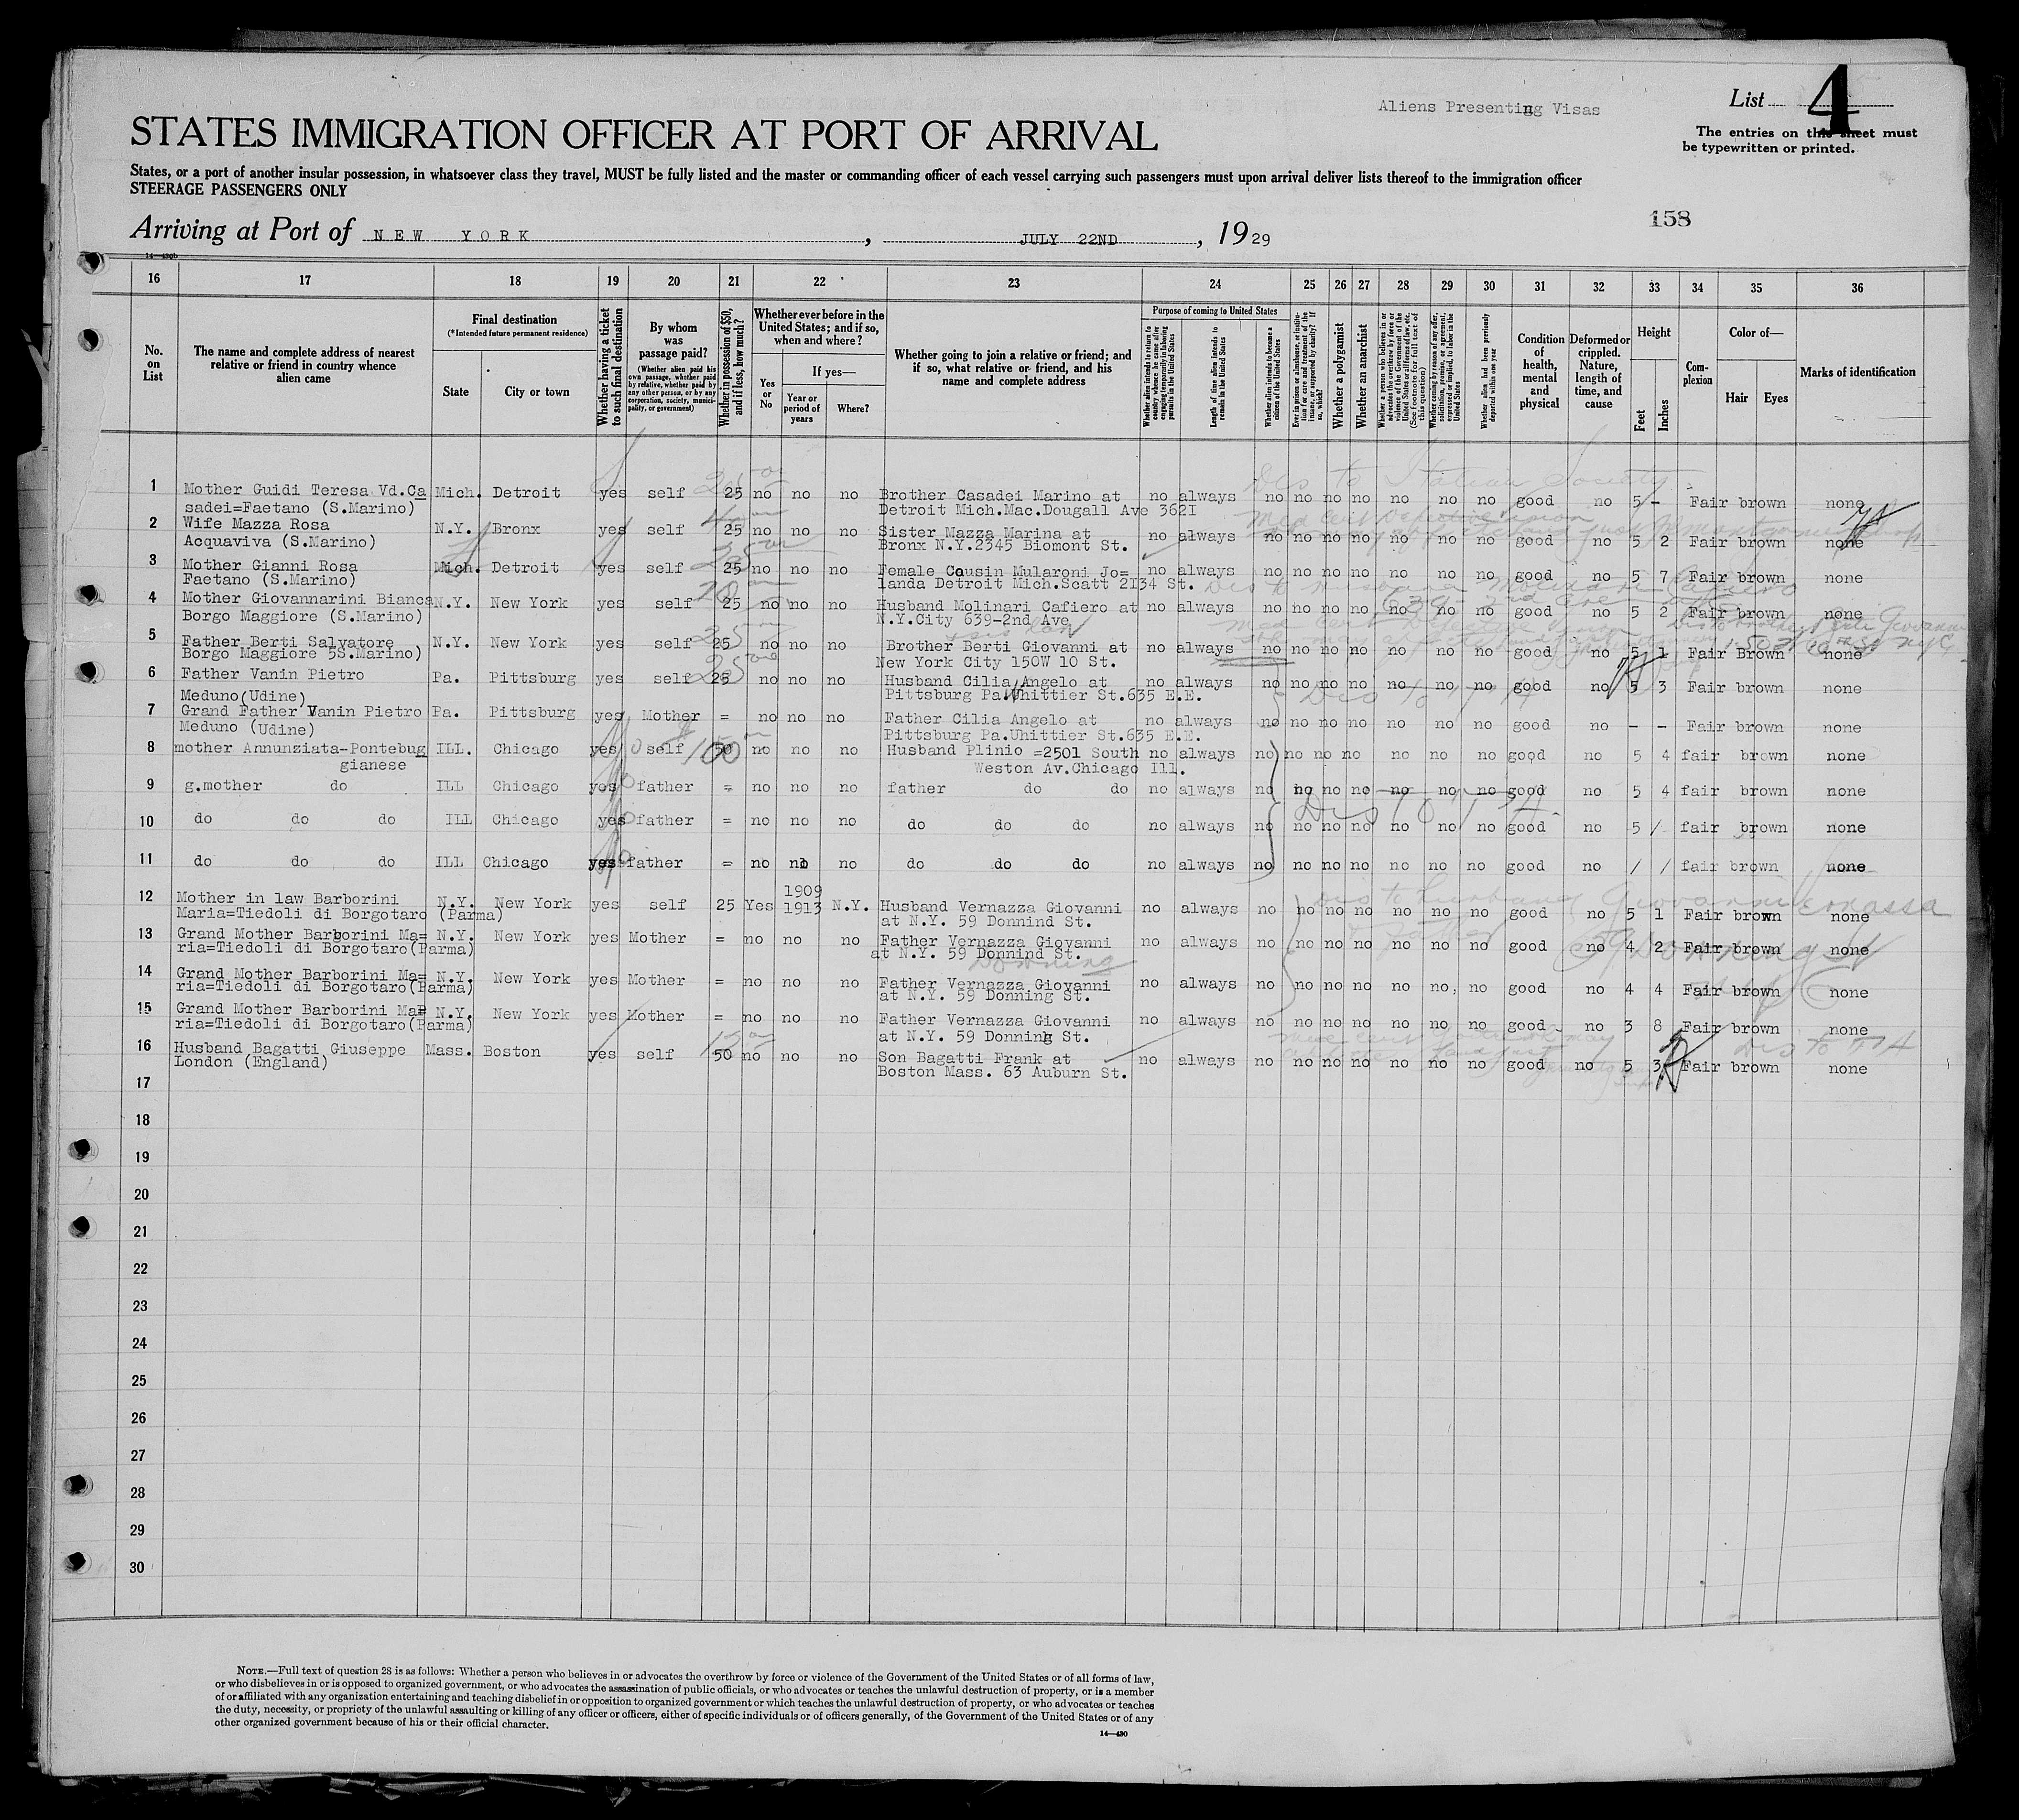 Aliens Presenting Visas
List 4
The entries on this sheet must
be typewritten or printed.
STATES IMMIGRATION OFFICER AT PORT OF ARRIVAL
States, or a port of another insular possession, in whatsoever class they travel, MUST be fully listed and the master or commanding officer of each vessel carrying such passengers must upon arrival deliver lists thereof to the immigration officer
STEERAGE PASSENGERS ONLY
158
Arriving at Port of NEW YORK, JULY 22ND, 1929
14—430b
16 17 18 19 20 21 22 23 24 25 26 27 28 29 30 31 32 33 34 35 36
No. on List
The name and complete address of nearest relative or friend in country whence alien came
Final destination
(*Intended future permanent residence)
State
City or town
Whether having a ticket to such final destination
By whom was passage paid?
(Whether alien paid his own passage, whether paid by relative, whether paid by any other person, or by any corporation, society, municipality, or government)
Whether in possession of $50, and if less, how much?
Whether ever before in the United States; and if so, when and where?
Yes or No
If yes—
Year or period of years
Where?
Whether going to join a relative or friend; and if so, what relative or friend, and his name and complete address
Purpose of coming to United States
Whether alien intends to return to country whence he came after engaging temporarily in laboring pursuits in the United States
Length of time alien intends to remain in the United States
Whether alien intends to become a citizen of the United States
Ever in prison or almshouse, or institution for care and treatment of the insane, or supported by charity? If so, which?
Whether a polygamist
Whether an anarchist
Whether a person who believes in or advocates the overthrow by force or violence of the Government of the United States or all forms of law, etc. (See footnote for full text of this question)
Whether coming by reason of any offer, solicitation, promise, or agreement, expressed or implied, to labor in the United States
Whether alien had been previously deported within one year
Condition of health, mental and physical
Deformed or crippled. Nature, length of time, and cause
Height
Feet
Inches
Complexion
Color of—
Hair
Eyes
Marks of identification
Dis to Italian Society
1 Mother Guidi Teresa Vd.Ca Mich. Detroit yes self 25 no no no Brother Casadei Marino at no always no no no no no no no good no 5 - Fair brown none
sadei=Faetano (S.Marino) Detroit Mich.Mac.Dougall Ave 3621
2 Wife Mazza Rosa N.Y. Bronx yes self 25 no no no Sister Mazza Marina at no always no no no no no no no good no 5 2 Fair brown none
Acquaviva (S.Marino) Bronx N.Y.2345 Biomont St.
3 Mother Gianni Rosa Mich. Detroit yes self 25 no no no Female Cousin Mularoni Jo= no always no no no no no no no good no 5 7 Fair brown none
Faetano (S.Marino) landa Detroit Mich.Scatt 2134 St.
4 Mother Giovannarini Bianca N.Y. New York yes self 25 no no no Husband Molinari Cafiero at no always no no no no no no no good no 5 2 Fair brown none
Borgo Maggiore (S.Marino) N.Y.City 639-2nd Ave
5 Father Berti Salvatore N.Y. New York yes self 25 no no no Brother Berti Giovanni at no always no no no no no no no good no 5 1 Fair Brown none
Borgo Maggiore 5S.Marino) New York City 150W 10 St.
6 Father Vanin Pietro Pa. Pittsburg yes self 25 no no no Husband Cilia Angelo at no always no no no no no no no good no 5 3 Fair brown none
Meduno(Udine) Pittsburg Pa.Whittier St.635 E.E.
7 Grand Father Vanin Pietro Pa. Pittsburg yes Mother = no no no Father Cilia Angelo at no always no no no no no no no good no - - Fair brown none
Meduno (Udine) Pittsburg Pa.Uhittier St.635 E.E.
8 mother Annunziata-Pontebug ILL. Chicago yes self 50 100 no no no Husband Plinio =2501 South no always no no no no no no no good no 5 4 fair brown none
gianese Weston Av.Chicago Ill.
9 g.mother do ILL Chicago yes father = no no no father do do no always no no no no no no no good no 5 4 fair brown none
10 do do do ILL Chicago yes father = no no no do do do no always no no no no no no no good no 5 / fair brown none
11 do do do ILL Chicago yes father = no no no do do do no always no no no no no no no good no / / fair brown none
12 Mother in law Barborini N.Y. New York yes self 25 Yes 1909 1913 N.Y. Husband Vernazza Giovanni no always no no no no no no no good no 5 1 Fair brown none
Maria=Tiedoli di Borgotaro (Parma) at N.Y. 59 Donnind St.
13 Grand Mother Barborini Ma= N.Y. New York yes Mother = no no no Father Vernazza Giovanni no always no no no no no no no good no 4 2 Fair brown none
ria=Tiedoli di Borgotaro(Parma) at N.Y. 59 Donnind St.
Downing
14 Grand Mother Barborini Ma= N.Y. New York yes Mother = no no no Father Vernazza Giovanni no always no no no no no no no good no 4 4 Fair brown none
ria=Tiedoli di Borgotaro(Parma) at N.Y. 59 Donning St.
15 Grand Mother Barborini Ma= N.Y. New York yes Mother = no no no Father Vernazza Giovanni no always no no no no no no no good no 3 8 Fair brown none
ria=Tiedoli di Borgotaro(Parma) at N.Y. 59 Donning St.
16 Husband Bagatti Giuseppe Mass. Boston yes self 50 no no no Son Bagatti Frank at no always no no no no no no no good no 5 3 Fair brown none
London (England) Boston Mass. 63 Auburn St.
17
18
19
20
21
22
23
24
25
26
27
28
29
30
NOTE.—Full text of question 28 is as follows: Whether a person who believes in or advocates the overthrow by force or violence of the Government of the United States or of all forms of law,
or who disbelieves in or is opposed to organized government, or who advocates the assassination of public officials, or who advocates or teaches the unlawful destruction of property, or is a member
of or affiliated with any organization entertaining and teaching disbelief in or opposition to organized government or which teaches the unlawful destruction of property, or who advocates or teaches
the duty, necessity, or propriety of the unlawful assaulting or killing of any officer or officers, either of specific individuals or of officers generally, of the Government of the United States or of any
other organized government because of his or their official character.
14—430